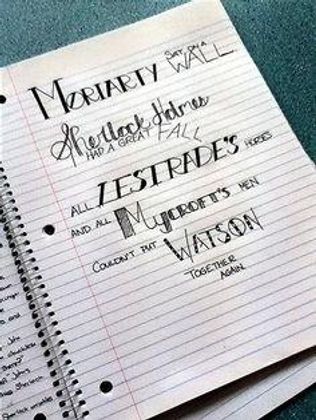 MORIARTY SAT ON A WALL
Sherlock Holmes
HAD A GREAT FALL
ALL LESTRADE'S HORSES
AND ALL MYCROFT'S MEN
COULDN'T PUT WATSON
TOGETHER
AGAIN.